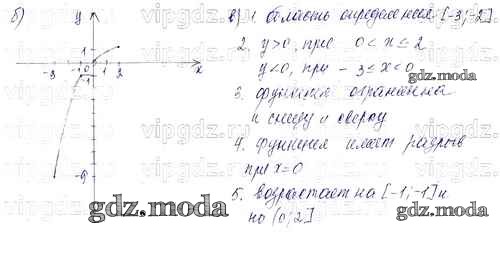 б)
y
1
-3 -1 0 1 2 x
-1
-9
в) 1. область определения [-3;-2]
2. y>0, при 0<x≤2
y<0, при -3≤x<0
3. функция ограничена
и снизу и сверху
4. функция имеет разрыв
при x=0
5. возрастает на [-1;-1] и
на (0;2]
gdz.moda
gdz.moda
gdz.moda
vipgdz.com